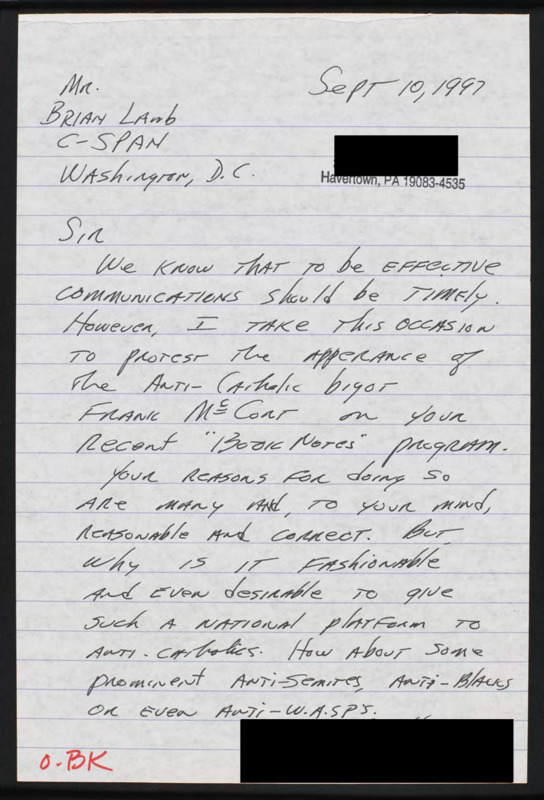 Sept 10, 1997
Mr.
Brian Lamb
C-SPAN
Washington, D.C.
Havertown, PA 19083-4535
Sir
We know that to be effective
communications should be timely.
However, I take this occasion
to protest the apperance of
the Anti-Catholic bigot
Frank McCort on your
recent "Book Notes" program.
Your reasons for doing so
are many and, to your mind,
reasonable and correct. But,
why is it fashionable
and even desirable to give
such a national platform to
anti-Catholics. How about some
prominent anti-Semites, anti-Blacks
or even anti-W.A.SP'S.
O-BK